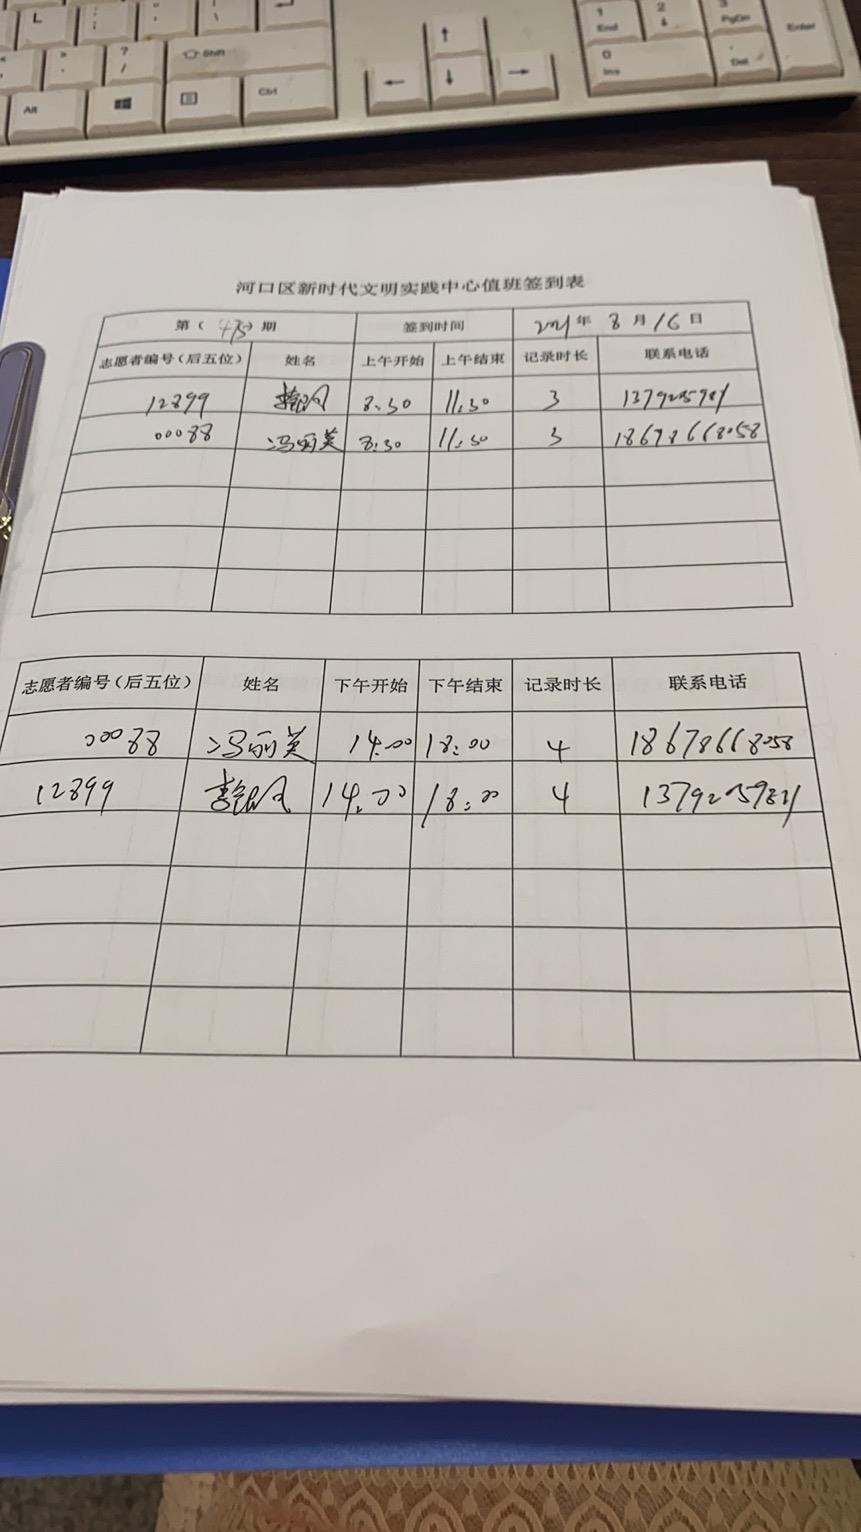 L : ; " ' | \
> . ? / Shift
Alt Ctrl
1 End 2 3 PgDn Enter
0 Ins . Del
河口区新时代文明实践中心值班签到表
第( )期 签到时间 2021年 8月16日
志愿者编号(后五位) 姓名 上午开始 上午结束 记录时长 联系电话
12899 8:30 11:30 3
00088 冯丽英 8:30 11:30 3 18678668058
志愿者编号(后五位) 姓名 下午开始 下午结束 记录时长 联系电话
00088 冯丽英 14:00 18:00 4 18678668058
12899 14:00 18:00 4